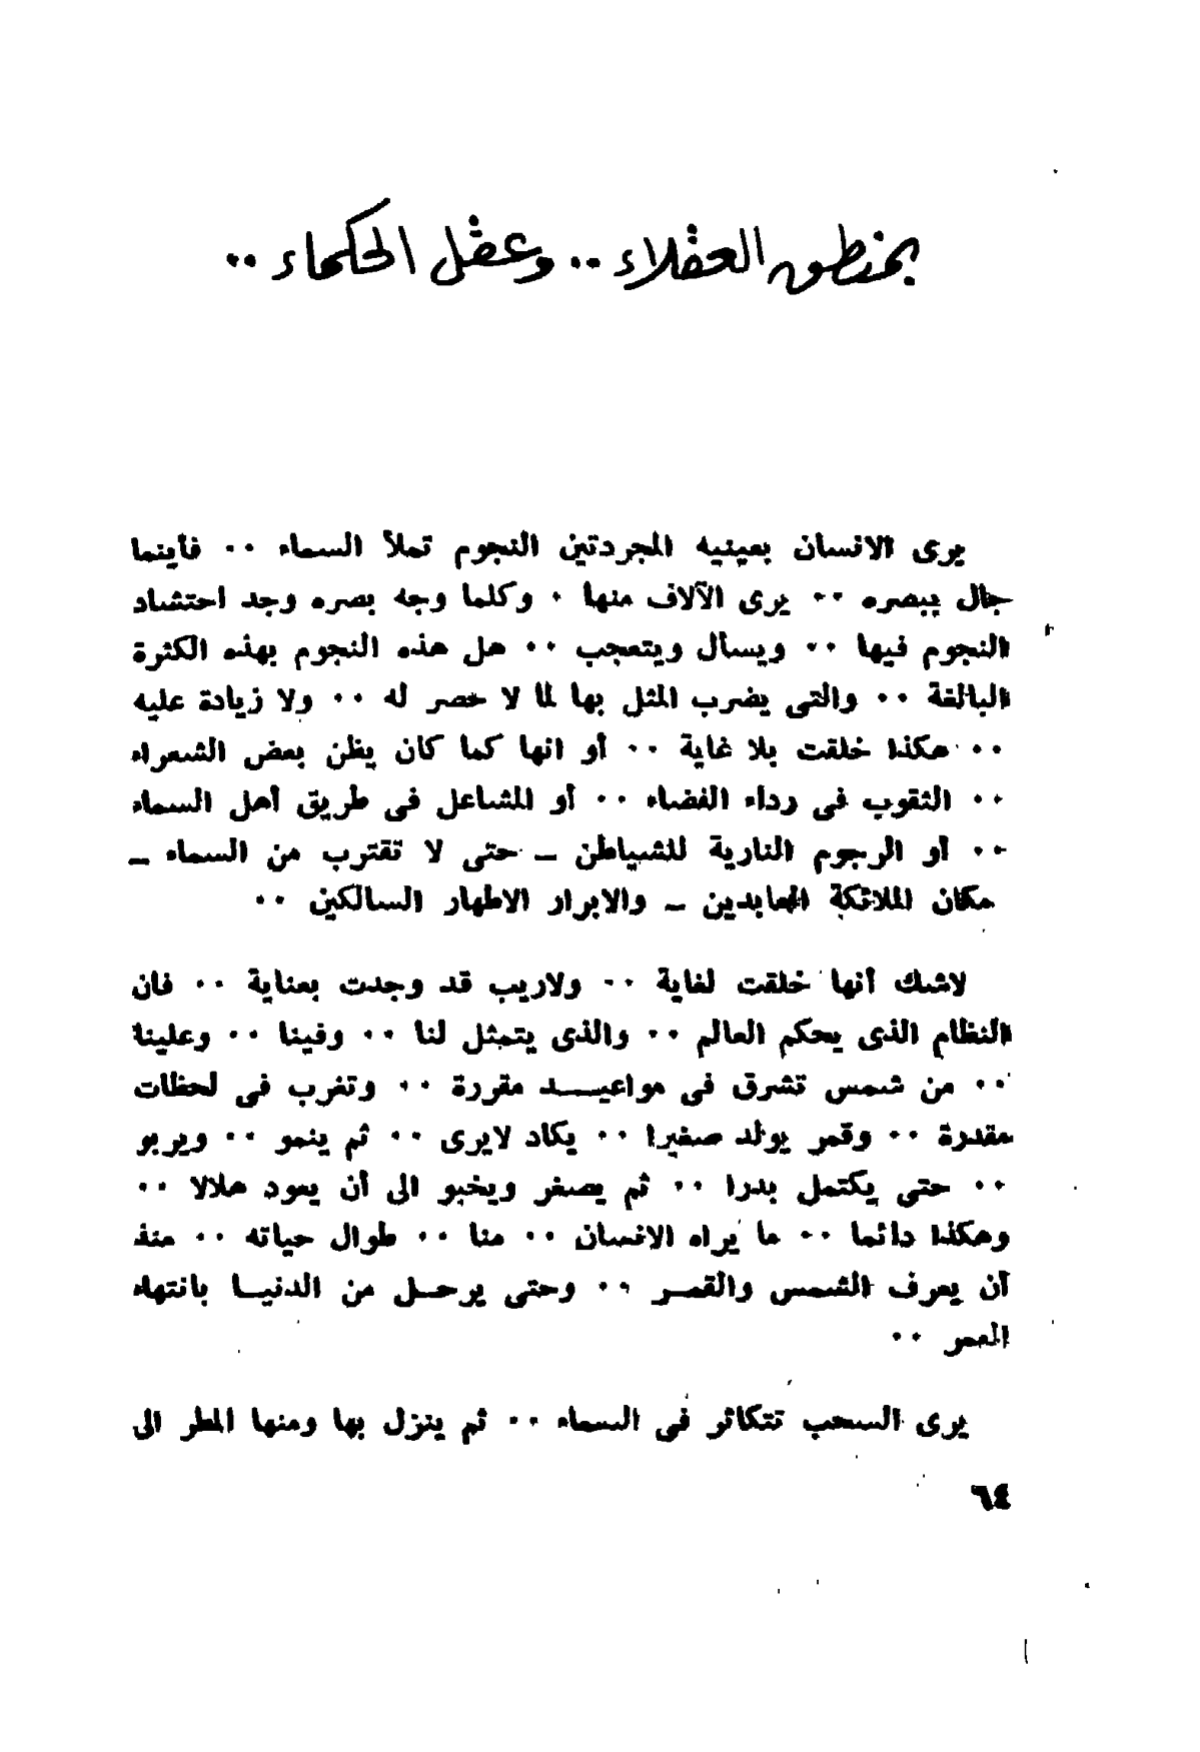 بمنطق العقلاء .. وعقل الحكماء ..
يرى الانسان بعينيه المجردتين النجوم تملأ السماء .. فأينما
جال ببصره .. يرى الآلاف منها . وكلما وجه بصره وجد احتشاد
النجوم فيها .. ويسأل ويتعجب .. هل هذه النجوم بهذه الكثرة
البالغة .. والتى يضرب المثل بها لما لا حصر له .. ولا زيادة عليه
.. هكذا خلقت بلا غاية .. أو انها كما كان يظن بعض الشعراء
.. الثقوب فى رداء الفضاء .. أو المشاعل فى طريق أهل السماء
.. أو الرجوم النارية للشياطن ــ حتى لا تقترب من السماء ــ
مكان الملائكة العابدين ــ والابرار الاطهار السالكين ..
لاشك أنها خلقت لغاية .. ولاريب قد وجدت بعناية .. فان
النظام الذى يحكم العالم .. والذى يتمثل لنا .. وفينا .. وعلينا
.. من شمس تشرق فى مواعيــد مقررة .. وتغرب فى لحظات
مقدرة .. وقمر يولد صغيرا .. يكاد لايرى .. ثم ينمو .. ويربو
.. حتى يكتمل بدرا .. ثم يصغر ويخبو الى أن يعود هلالا ..
وهكذا دائما .. ما يراه الانسان .. منا .. طوال حياته .. منذ
أن يعرف الشمس والقمـر .. وحتى يرحـل من الدنيـا بانتهاء
العمر ..
يرى السحب تتكاثر فى السماء .. ثم ينزل بها ومنها المطر الى
٦٤